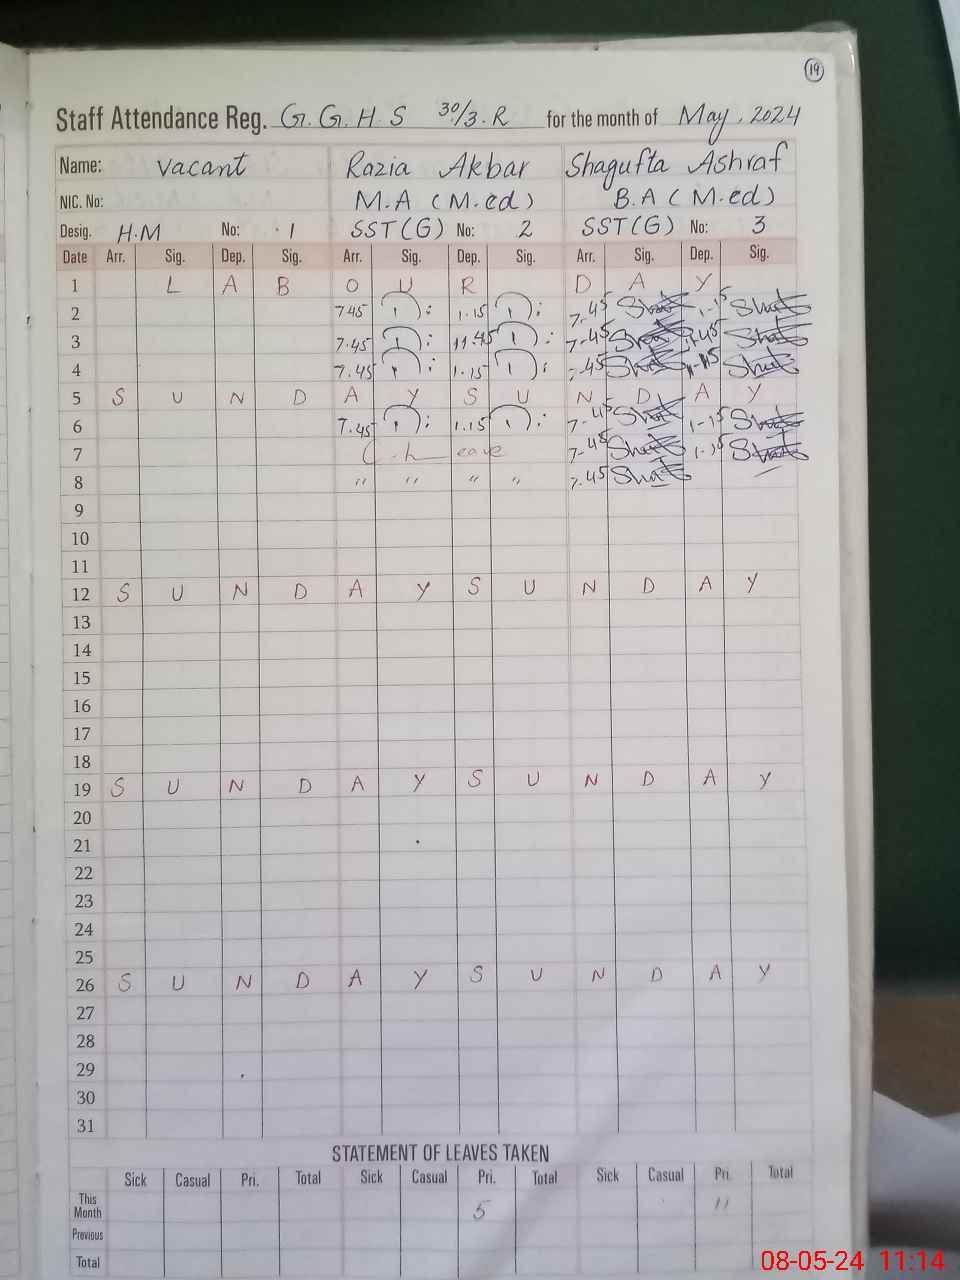 19
Staff Attendance Reg. G.G.H.S 30/3.R for the month of May, 2024
Name: Vacant Razia Akbar Shagufta Ashraf
NIC. No: M.A (M.ed) B.A (M.ed)
Desig. H.M No: 1 SST(G) No: 2 SST(G) No: 3
Date Arr. Sig. Dep. Sig. Arr. Sig. Dep. Sig. Arr. Sig. Dep. Sig.
1 L A B O U R D A Y
2 7.45 1.15 7.45 1.15
3 7.45 11.45 7.45 11.45
4 7.45 1.15 7.45
5 S U N D A Y S U N D A Y
6 7.45 1.15 7-45 1-15
7 Leave 7-45 1-15
8 " " " " 7.45
9
10
11
12 S U N D A Y S U N D A Y
13
14
15
16
17
18
19 S U N D A Y S U N D A Y
20
21
22
23
24
25
26 S U N D A Y S U N D A Y
27
28
29
30
31
STATEMENT OF LEAVES TAKEN
Sick Casual Pri. Total Sick Casual Pri. Total Sick Casual Pri. Total
This Month 5 11
Previous
Total
08-05-24 11:14